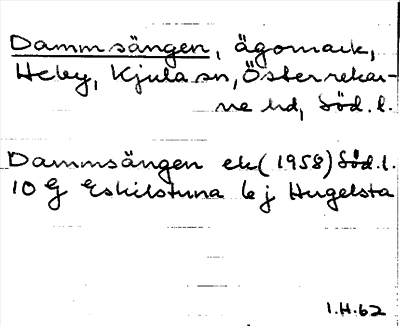 Dammsängen, ägomark,
Heby, Kjula sn, Österrekar-
ne hd, Söd.l.
Dammsängen ek (1958) Söd.l.
10 G Eskilstuna 6 j Hugelsta
1.H.62